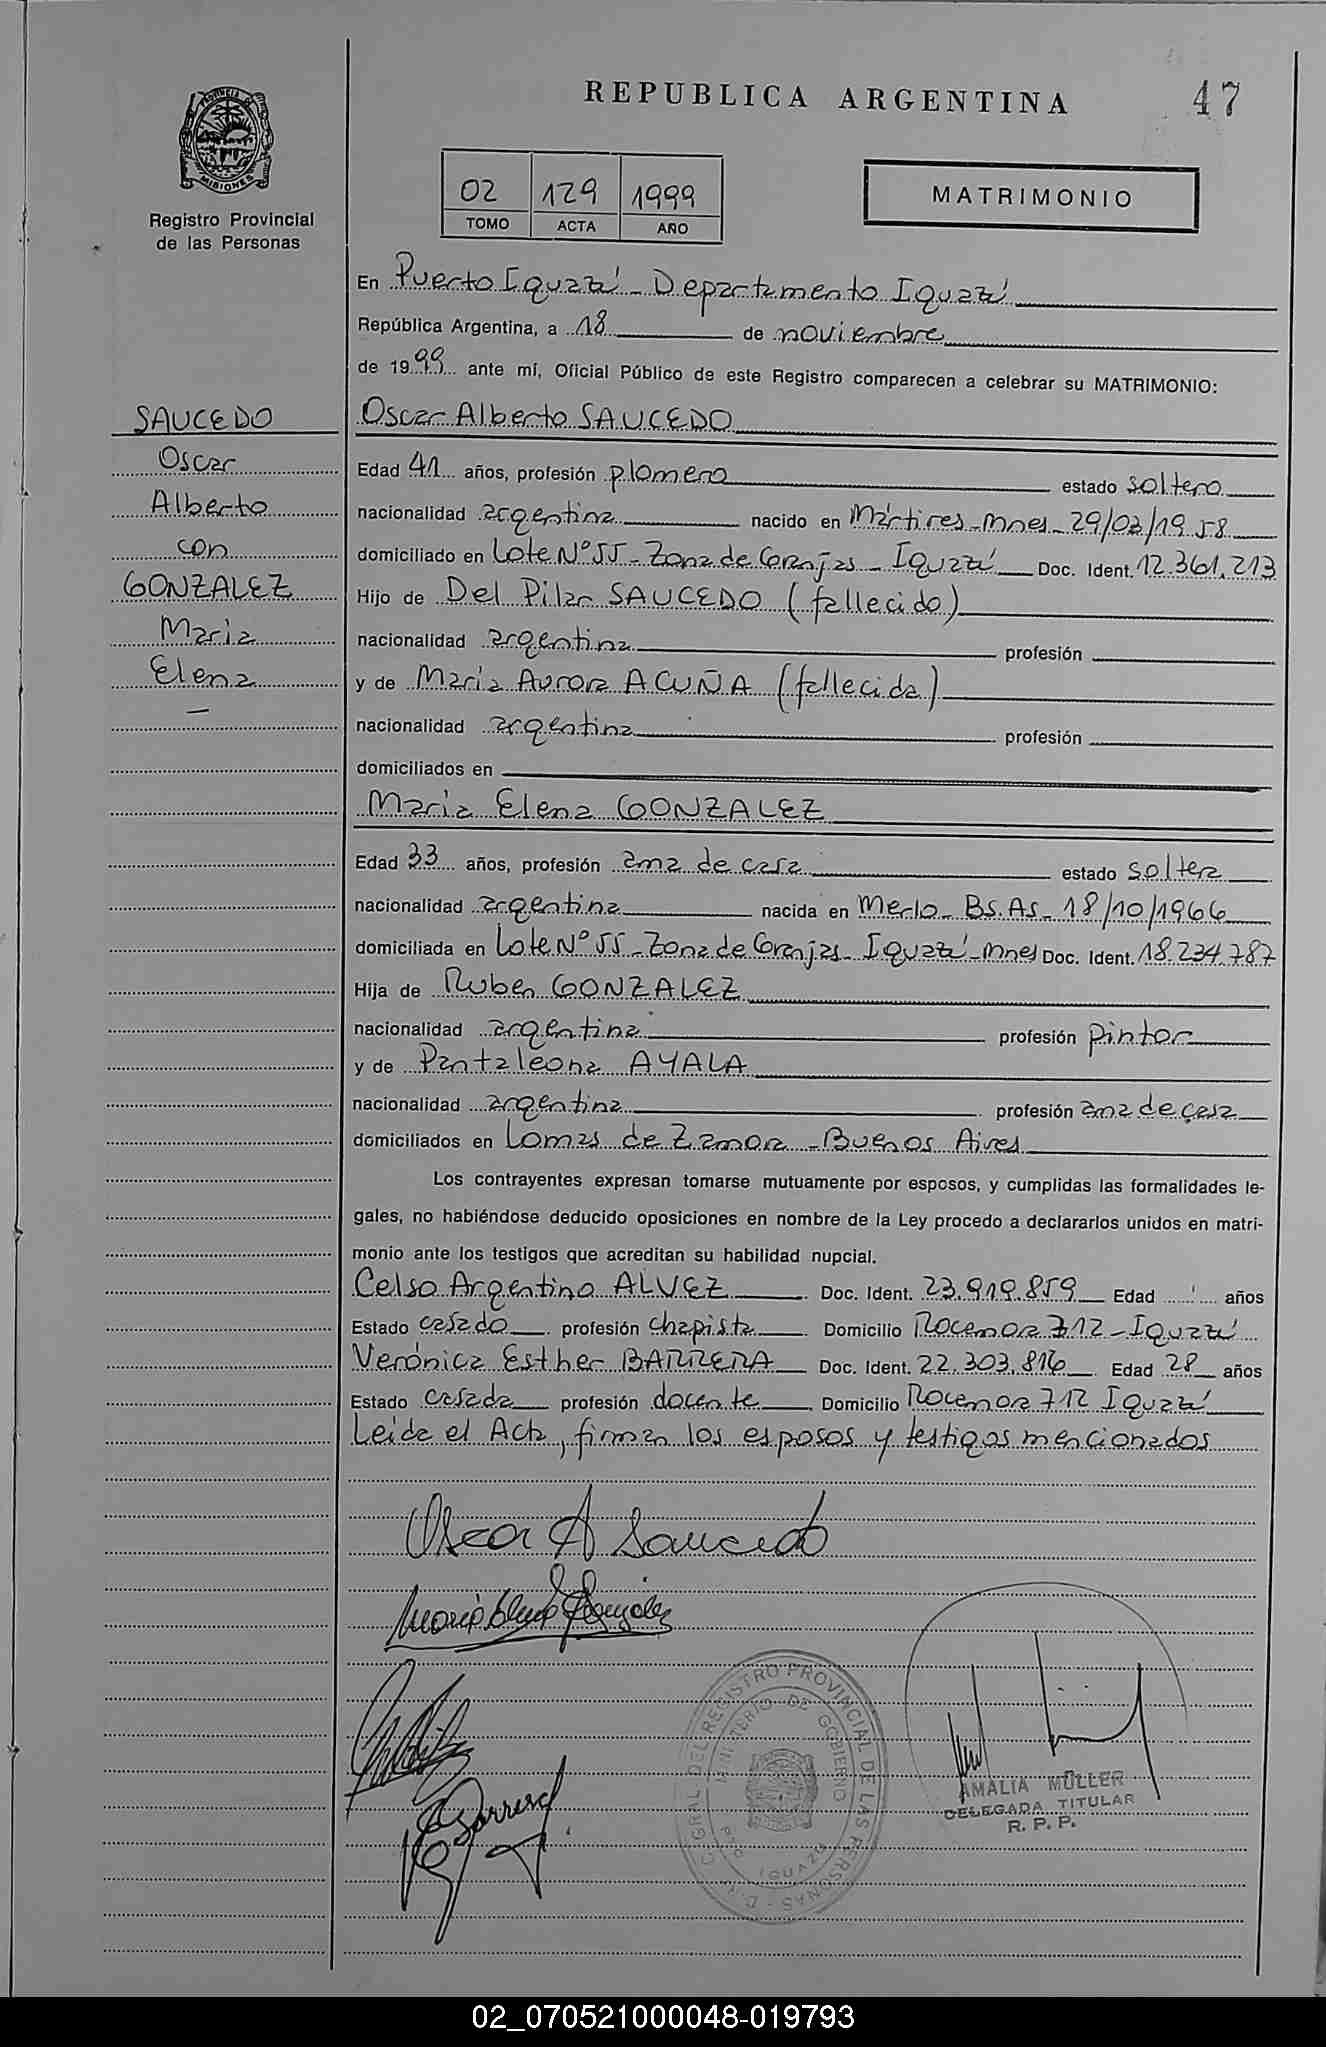 REPUBLICA ARGENTINA
47
PROVINCIA DE
MISIONES
Registro Provincial
de las Personas
02 129 1999
TOMO ACTA AÑO
MATRIMONIO
En Puerto Iguazú - Departamento Iguazú
República Argentina, a 18 de noviembre
de 1999 ante mí, Oficial Público de este Registro comparecen a celebrar su MATRIMONIO:
SAUCEDO
Oscar
Alberto
con
GONZALEZ
Maria
Elena
Oscar Alberto SAUCEDO
Edad 41 años, profesión plomero estado soltero
nacionalidad argentina nacido en Mártires - Mnes - 29/03/1958
domiciliado en Lote Nº 55 - Zona de Granjas - Iguazú Doc. Ident. 12.361.213
Hijo de Del Pilar SAUCEDO (fallecido)
nacionalidad argentina profesión
y de María Aurora ACUÑA (fallecida)
nacionalidad argentina profesión
domiciliados en
Maria Elena GONZALEZ
Edad 33 años, profesión ama de casa estado soltera
nacionalidad argentina nacida en Merlo - Bs. As - 18/10/1966
domiciliada en Lote Nº 55 - Zona de Granjas - Iguazú - Mnes Doc. Ident. 18.234.787
Hija de Ruben GONZALEZ
nacionalidad argentina profesión pintor
y de Pantaleona AYALA
nacionalidad argentina profesión ama de casa
domiciliados en Lomas de Zamora - Buenos Aires
Los contrayentes expresan tomarse mutuamente por esposos, y cumplidas las formalidades le-
gales, no habiéndose deducido oposiciones en nombre de la Ley procedo a declararlos unidos en matri-
monio ante los testigos que acreditan su habilidad nupcial.
Celso Argentino ALVEZ Doc. Ident. 23.919.859 Edad años
Estado casado profesión chapista Domicilio Rocamora 712 - Iguazú
Verónica Esther BARRERA Doc. Ident. 22.303.816 Edad 28 años
Estado casada profesión docente Domicilio Rocamora 712 Iguazú
Leída el Acta, firman los esposos y testigos mencionados
Oscar A Saucedo
Maria Elena Gonzalez
GRAL DEL REGISTRO PROVINCIAL DE LAS PERSONAS
MINISTERIO DE GOBIERNO
IGUAZU
AMALIA MÜLLER
DELEGADA TITULAR
R. P. P.
02_070521000048-019793